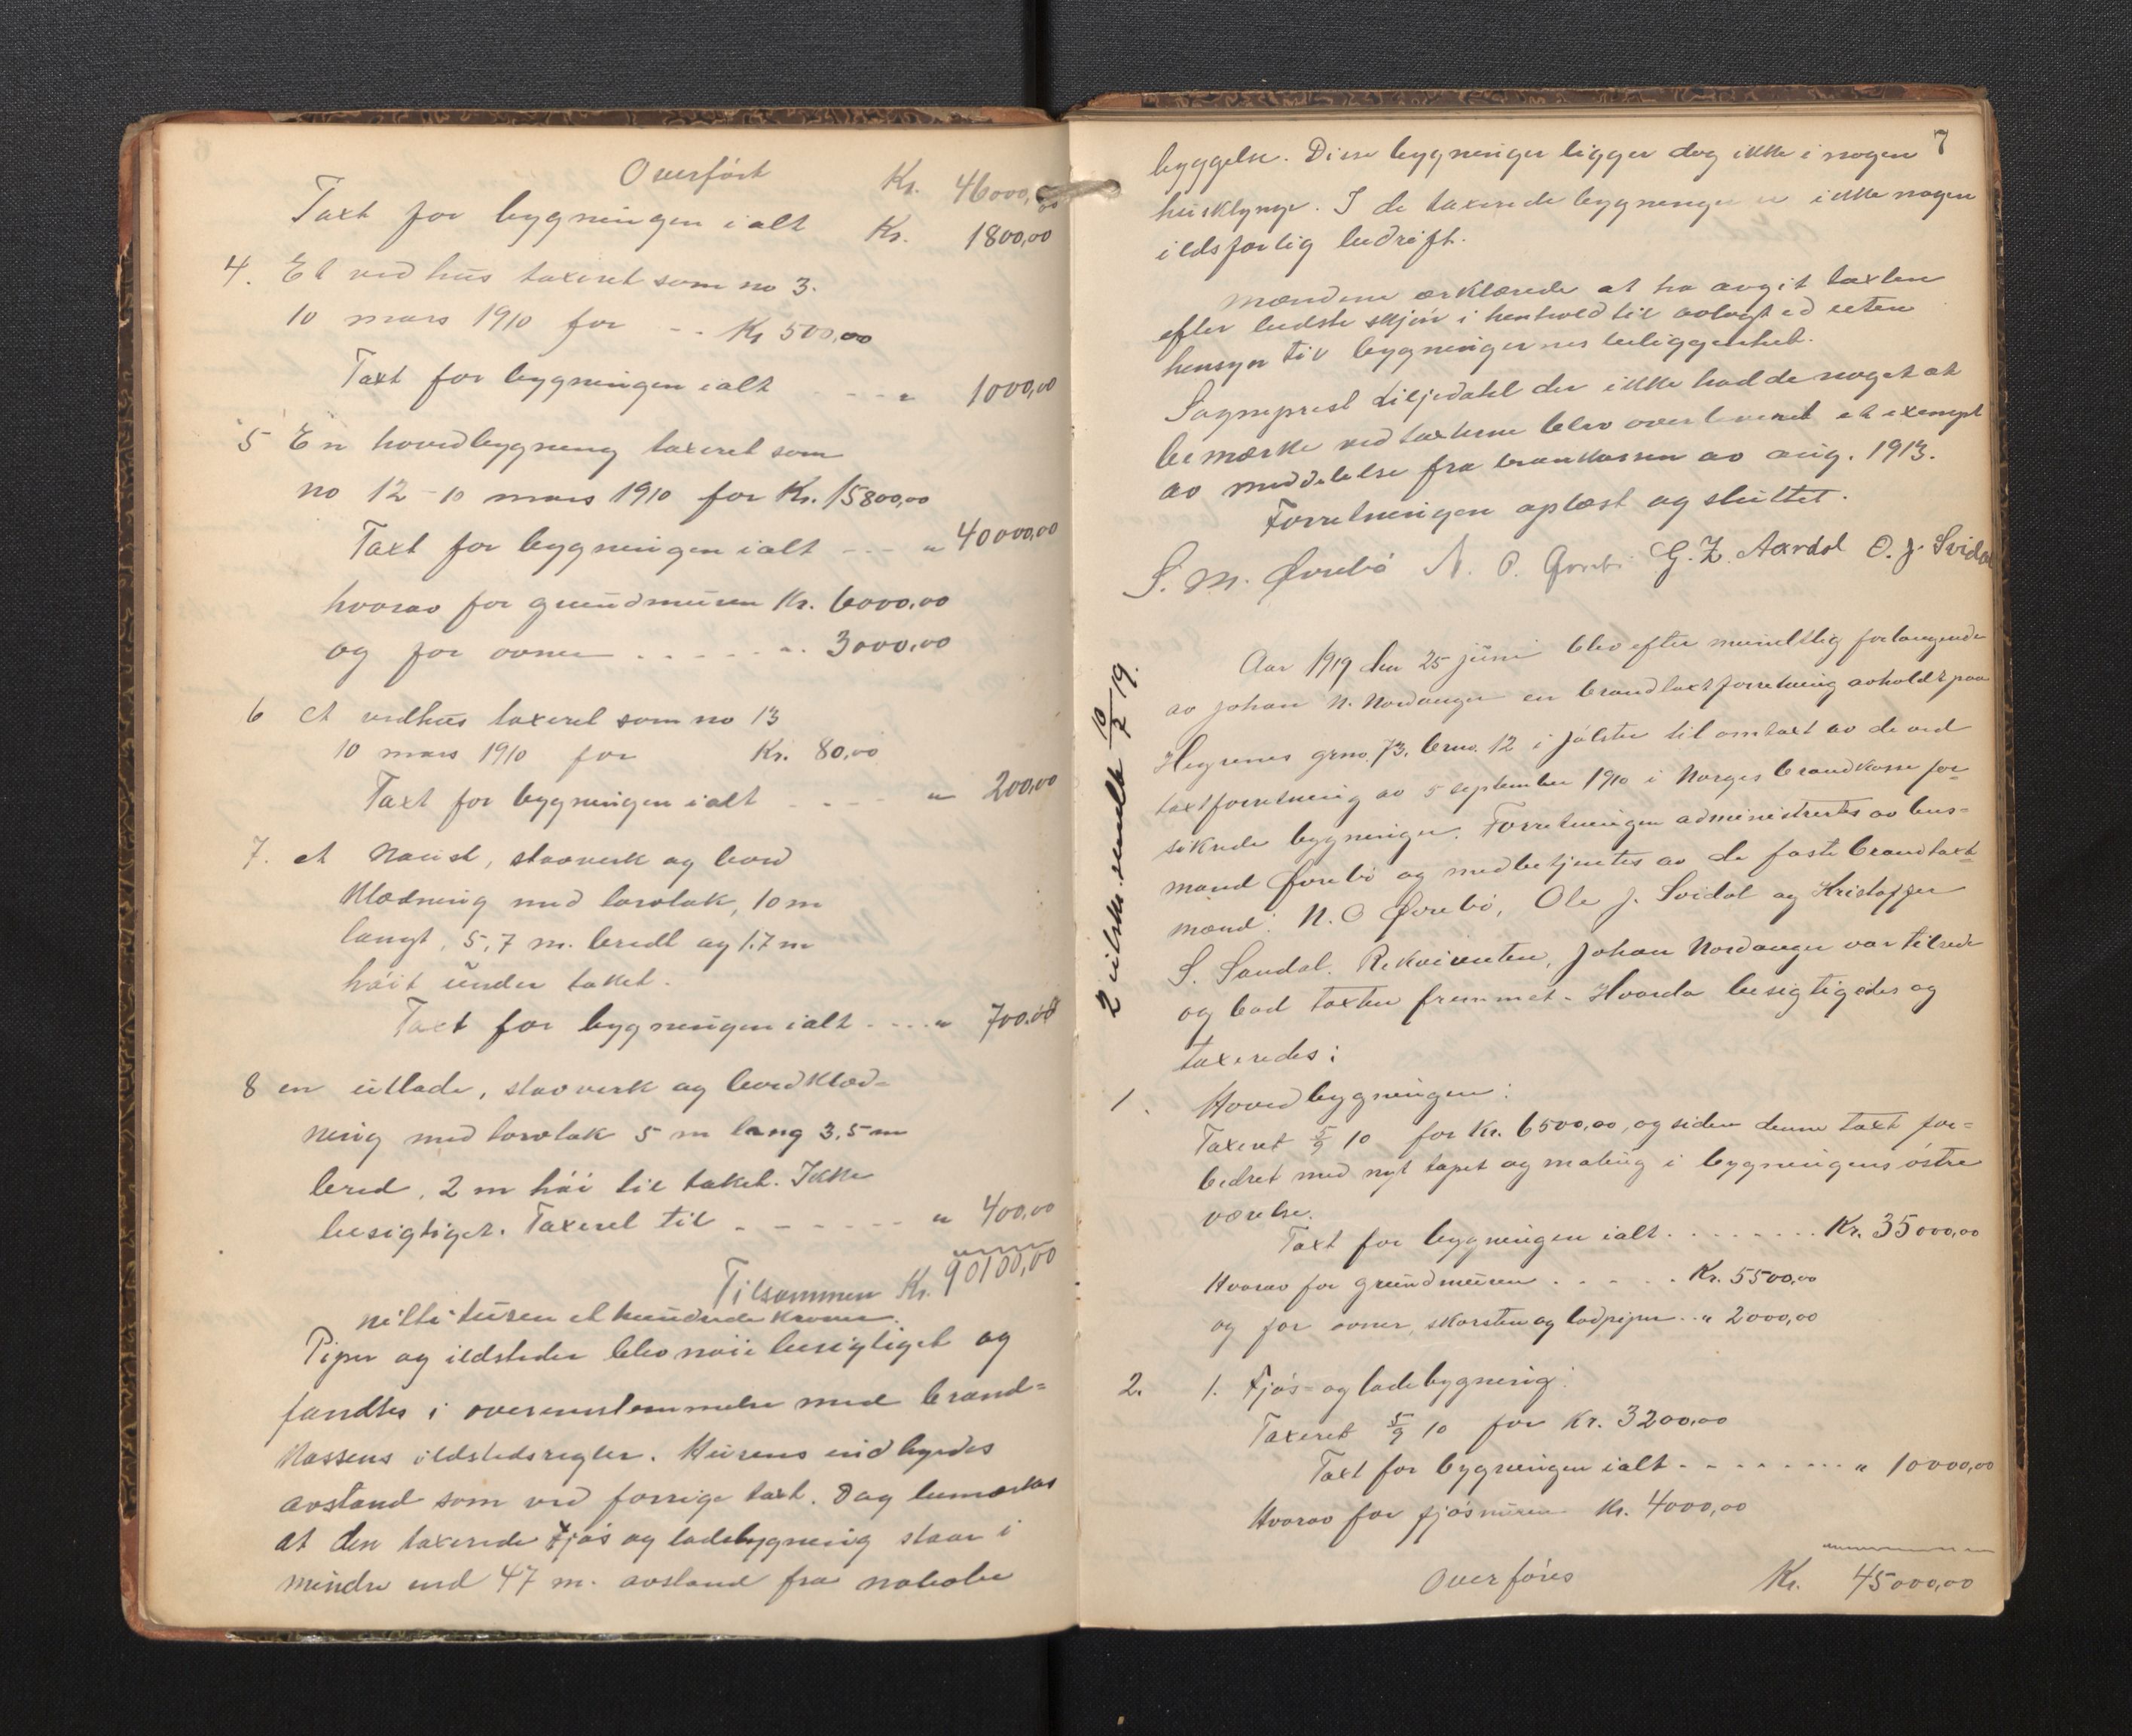 Overført Kr. 46000,00
Taxt for bygningen ialt Kr. 1800,00
4. Et vedhus taxeret som no 3.
10 mars 1910 for -- Kr 500,00
Taxt for bygningen ialt - - - " 1000,00
5 En hovedbygning taxeret som
no 12 - 10 mars 1910 for Kr. 15800,00
Taxt for bygningen ialt - - - " 40000,00
hvorav for grundmuren Kr. 6000,00
og for ovner . - - - - ". 3000,00
6 et vedhus taxeret som no 13
10 mars 1910 for Kr. 80,00
Taxt for bygningen ialt - - - - " 200,00
7. et Naust, stavverk og bord
klædning med torvtak, 10 m
langt, 5,7 m. bredt og 1.7 m
høit under taket.
Taxt for bygningen ialt . - - . " 700.00
8 en utlade, stavverk og bordklæd-
ning med torvtak 5 m lang 3,5 m
bred, 2 m høi til taket. Ikke
besigtiget. Taxeret til - - - - - - " 400,00
Tilsammen Kr. 90100,00
nitti tusen et hundrede kroner.
Piper og ildsteder blev nøie besigtiget og
fandtes i overensstemmelse med brand=
kassens ildstedsregler. Husens indbyrdes
avstand som ved forrige taxt. Dog bemærkes
at den taxerede Fjøs og ladebygning staar i
mindre end 47 m. avstand fra nabobe
7
byggelse. Disse bygninger ligger dog ikke i nogen
husklynge. I de taxerede bygninger er ikke nogen
ildsfarlig bedrift.
Mændene erklærede at ha avgit taxten
efter bedste skjøn i henhold til avlagt ed uten
hensyn til bygningernes beliggenhet.
Sogneprest Liljedahl der ikke hadde noget at
bemærke ved taxterne blev overleveret et exempl
av meddelelse fra brankassen av aug. 1913.
Forretningen oplæst og sluttet.
S. M. Øvrebø N. O. Øvrebø G. Z. Aardal O. J. Svidal
2 utskr. sendt 10/7 19.
Aar 1919 den 25 juni blev efter mundtlig forlangende
av Johan N. Nordanger en brandtaxtforretning avholdt paa
Hegrenes grno. 73. brno. 12 i Jølster til omtaxt av de ved
taxtforretning av 5 september 1910 i Norges brandkasse for-
sikrede bygninger. Forretningen administrertes av lens=
mand Øvrebø og medbetjentes av de faste brandtaxt=
mænd: N. O Øvrebø, Ole J. Svidal og Kristoffer
S. Sandal. Rekvirenten, Johan Nordanger var tilstede
og bad taxten fremmet. Hvorda besigtigedes og
taxeredes:
1. Hovedbygningen:
Taxeret 5/9 10 for Kr. 6500,00, og siden denne taxt for=
bedret med nyt tapet og maling i bygningens østre
værelse.
Taxt for bygningen ialt . . . . . . . . Kr. 35000,00
Hvorav for grundmuren . . - . . Kr. 5500,00
og for ovner, skorsten og lodpiper . . " 2000,00
2. 1. Fjøs- og ladebygning:
Taxeret 5/9 10 for Kr. 3200,00
Taxt for bygningen ialt - - - - - - - - " 10000,00
Hvorav for fjøsmuren Kr. 4000,00
Overføres Kr. 45000,00